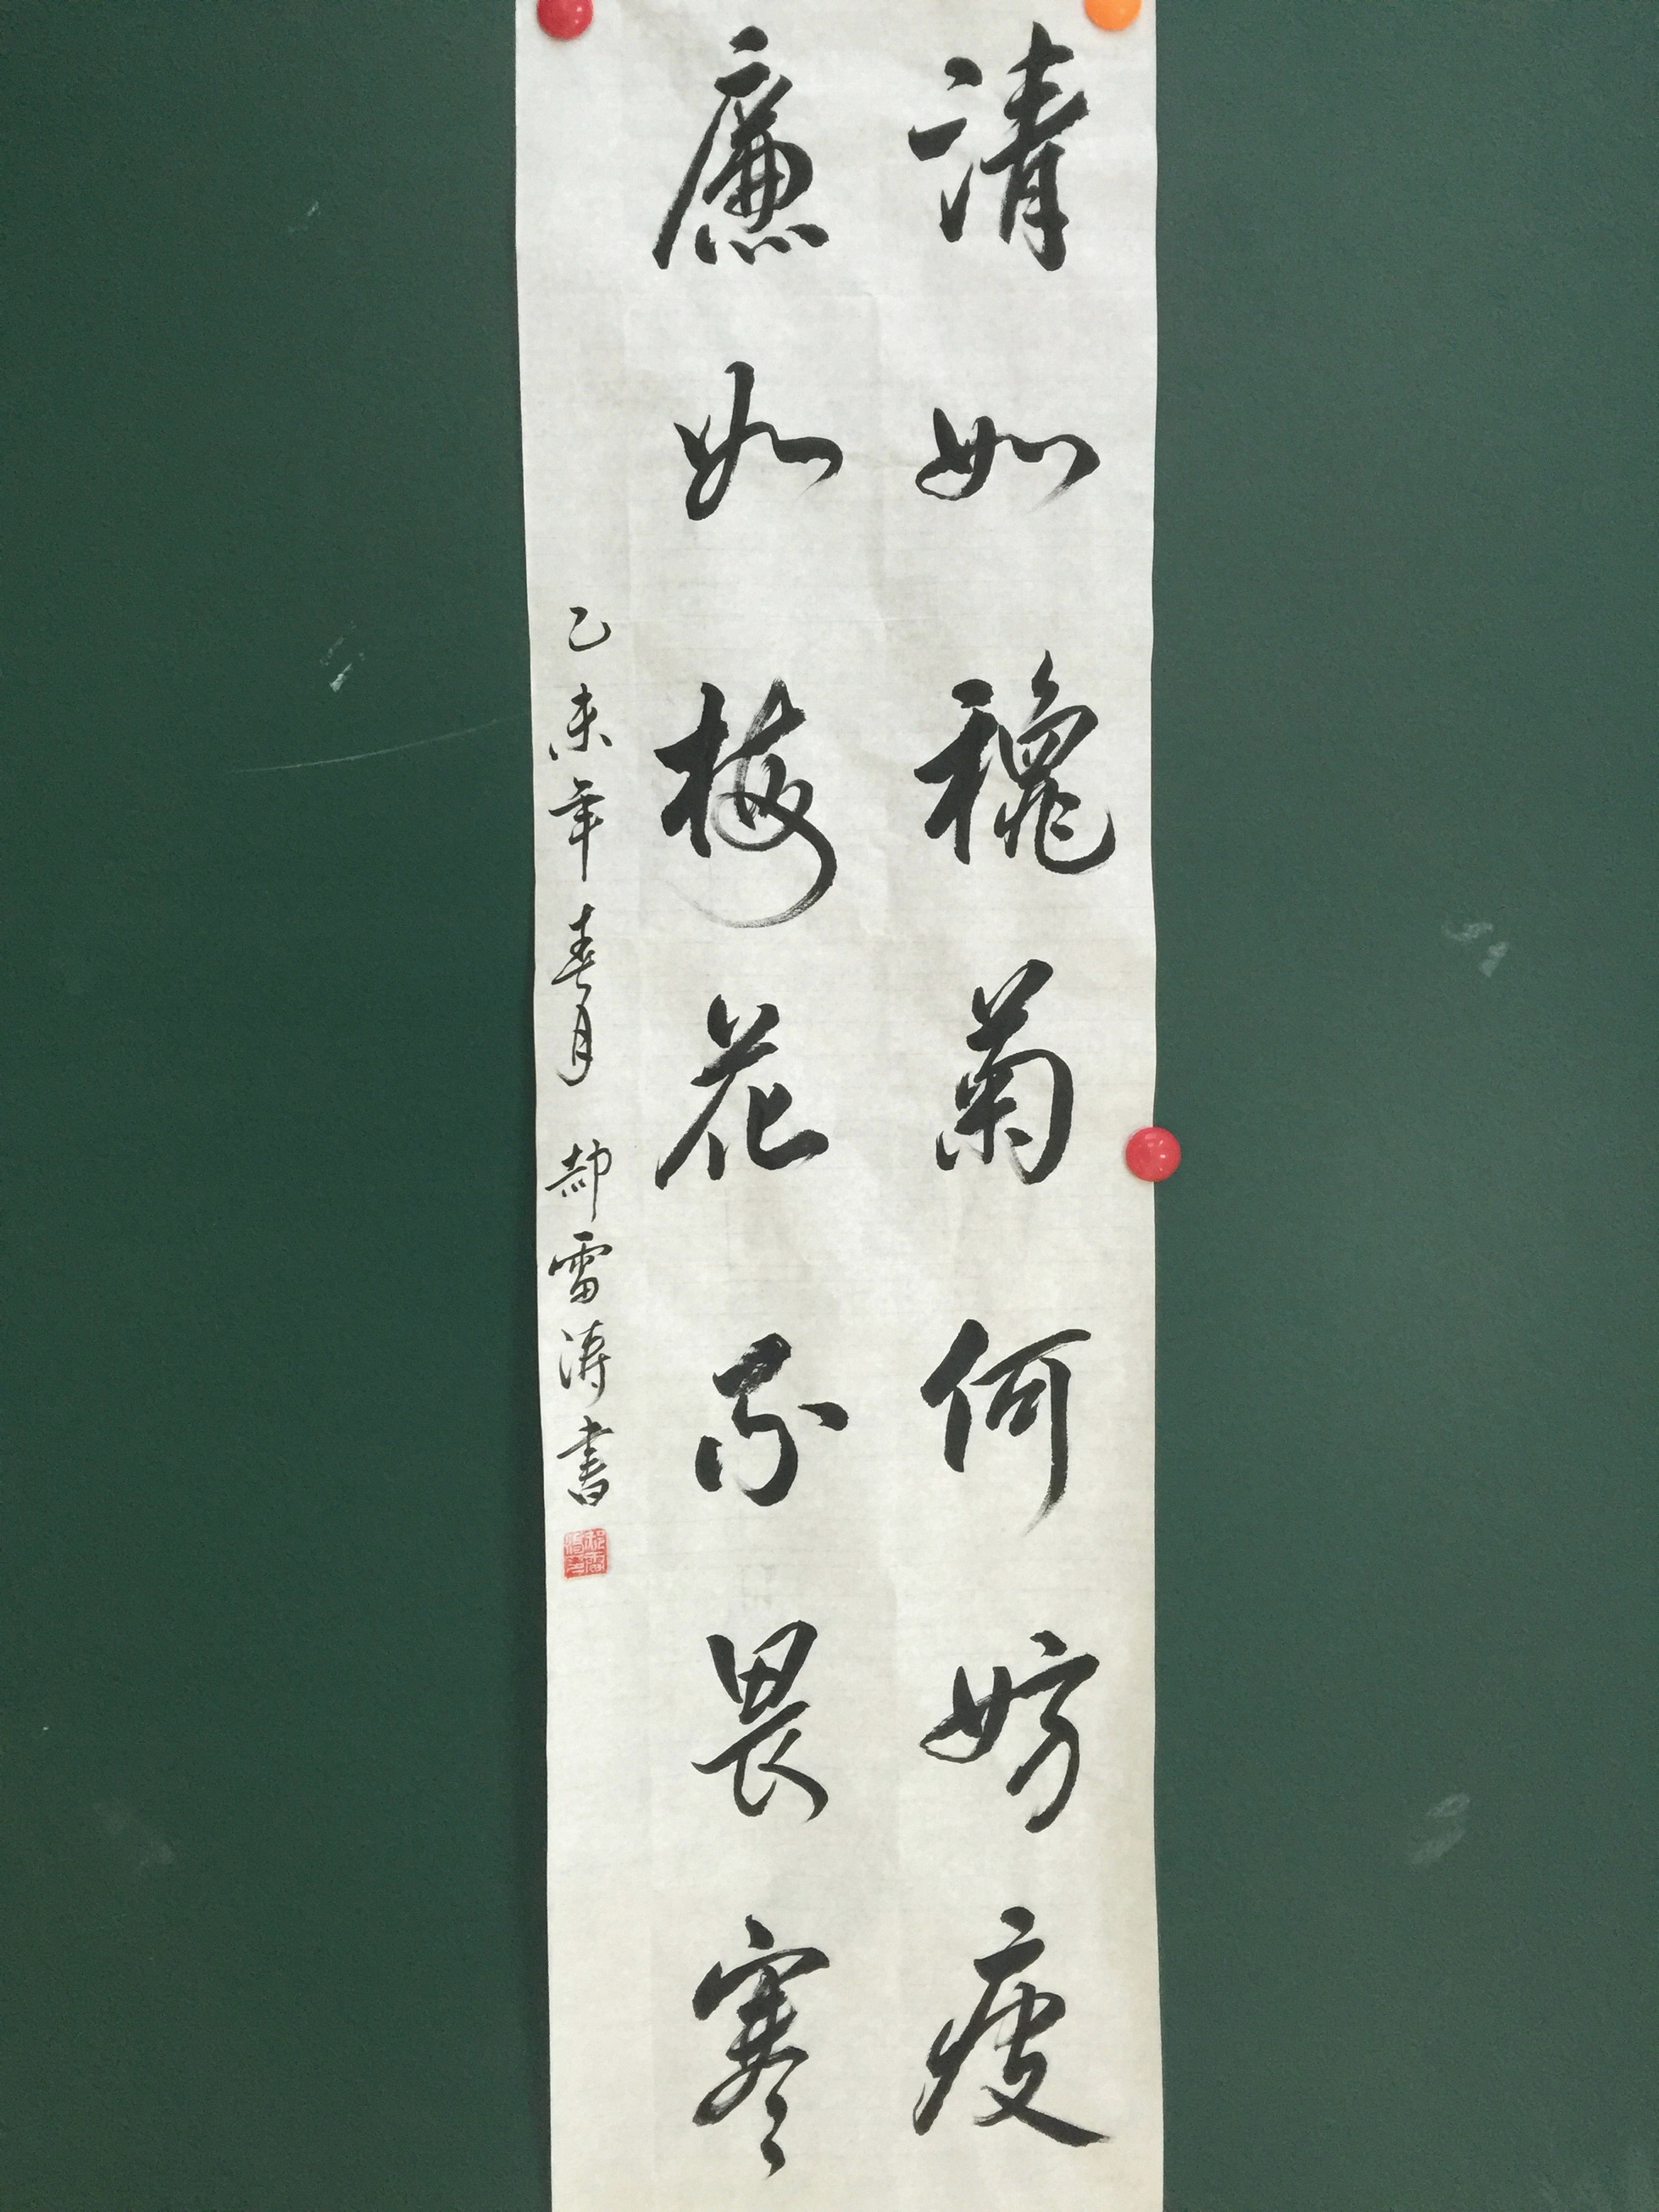 清如穐菊何妨瘦
廉如梅花不畏寒
乙未年春月 郝雷涛書